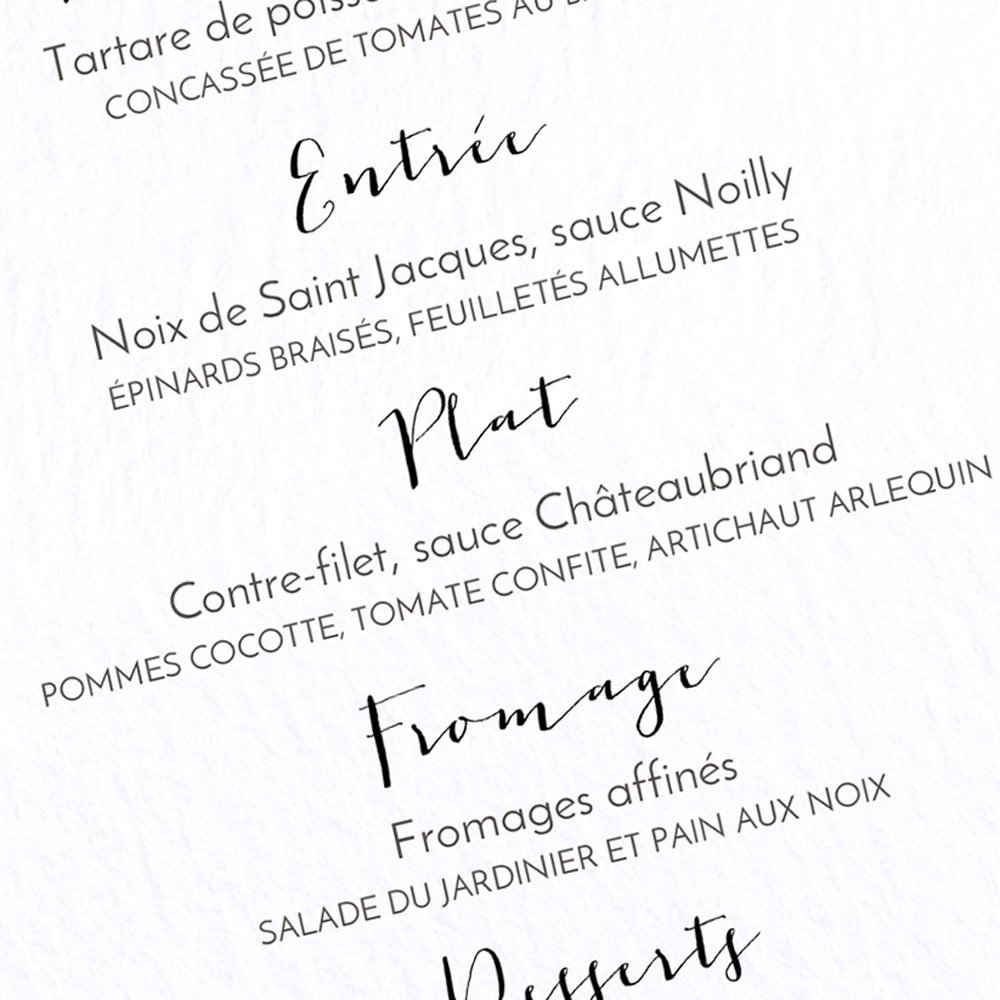 Tartare de
CONCASSÉE DE TOMATES AU
Entrée
Noix de Saint Jacques, sauce Noilly
ÉPINARDS BRAISÉS, FEUILLETÉS ALLUMETTES
Plat
Contre-filet, sauce Châteaubriand
POMMES COCOTTE, TOMATE CONFITE, ARTICHAUT ARLEQUIN
Fromage
Fromages affinés
SALADE DU JARDINIER ET PAIN AUX NOIX
Desserts